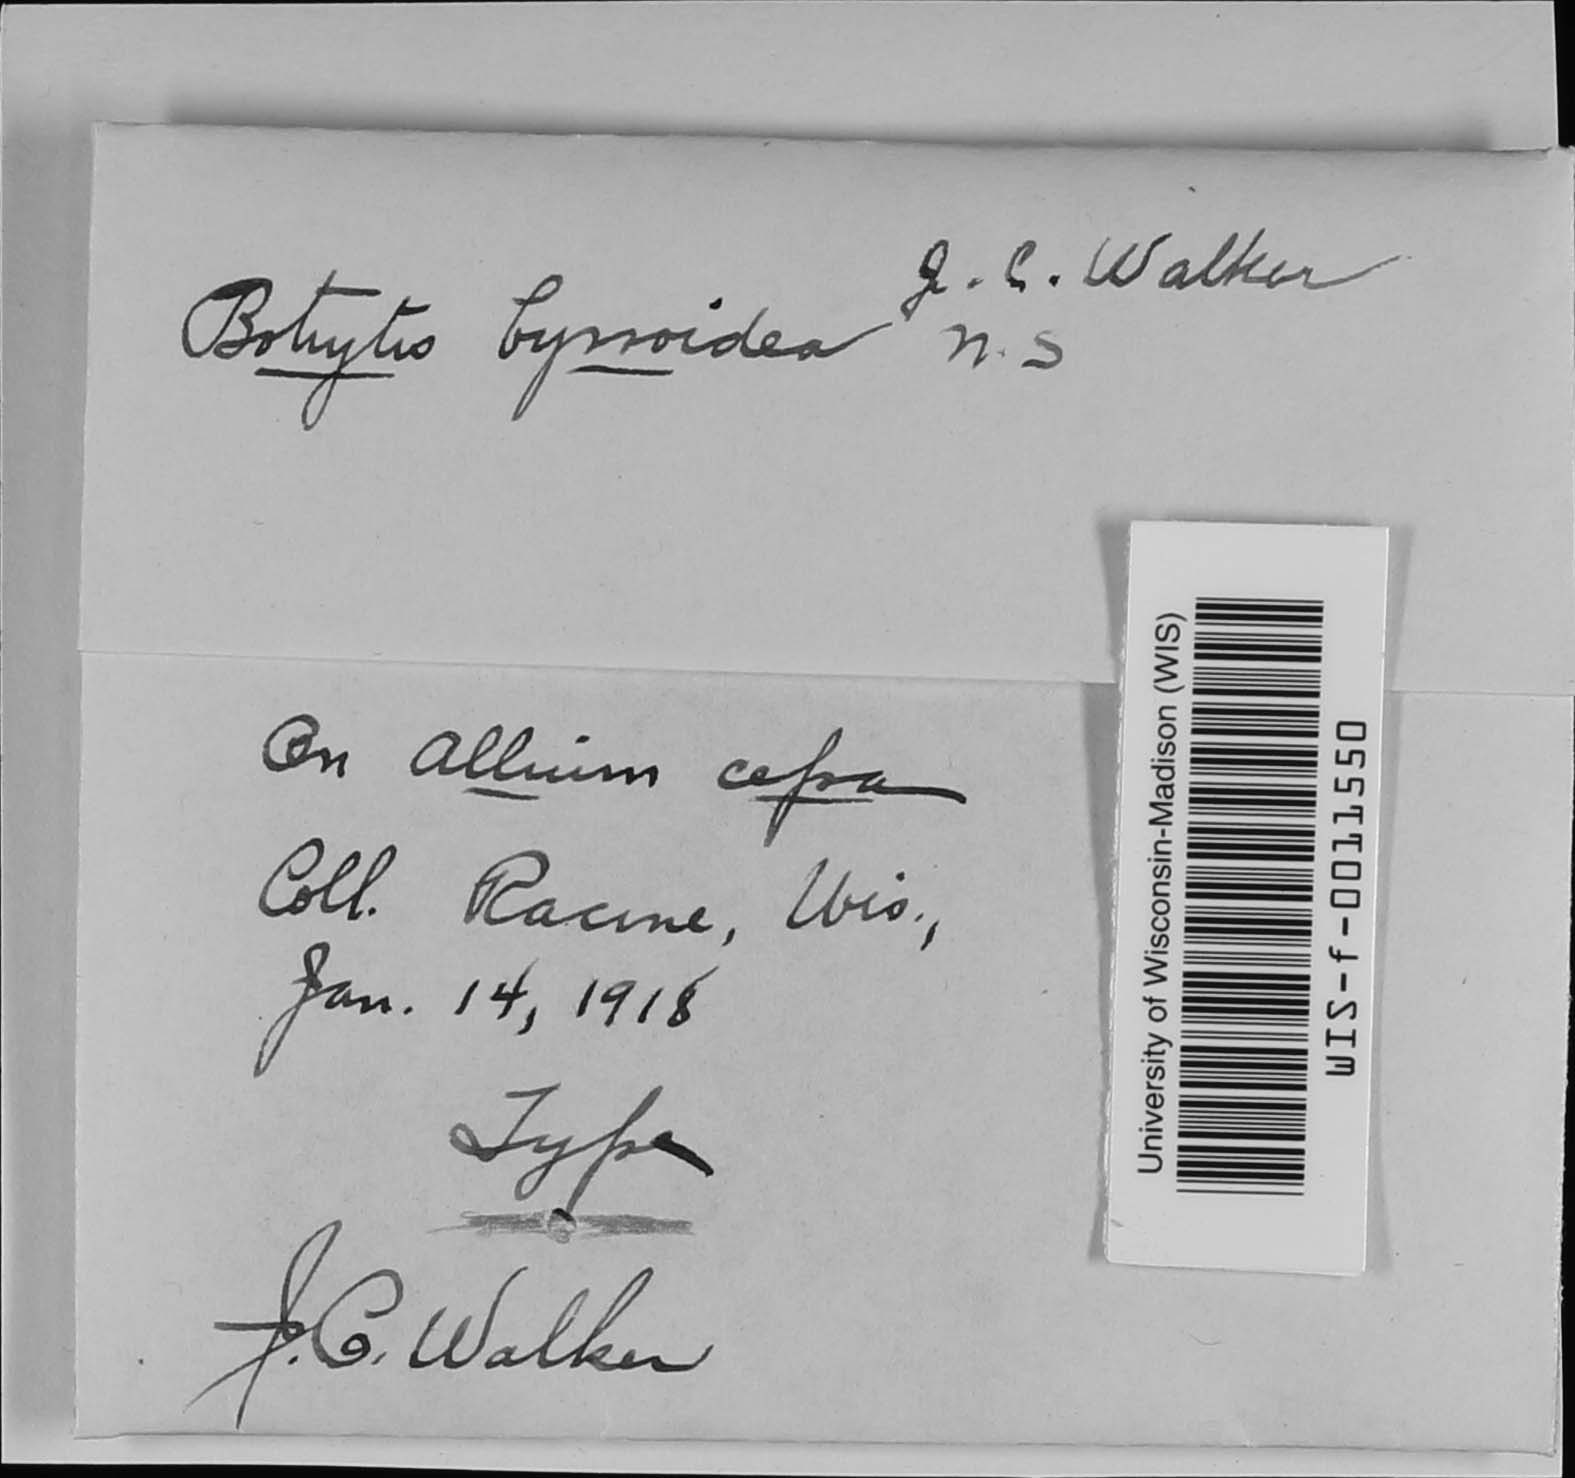 J. C. Walker
Botrytis byssoidea n. s
On Allium cepa
Coll. Racine, Wis.,
Jan. 14, 1918
Type
J. C. Walker
University of Wisconsin-Madison (WIS)
WIS-f-0011550